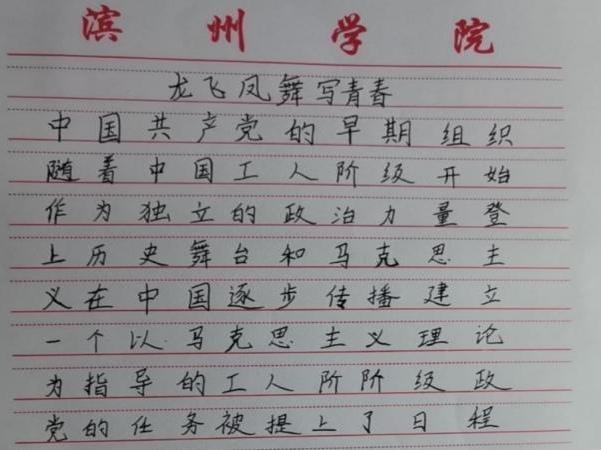 滨州学院
龙飞凤舞写青春
中国共产党的早期组织
随着中国工人阶级开始
作为独立的政治力量登
上历史舞台和马克思主
义在中国逐步传播建立
一个以马克思主义理论
为指导的工人阶阶级政
党的任务被提上了日程